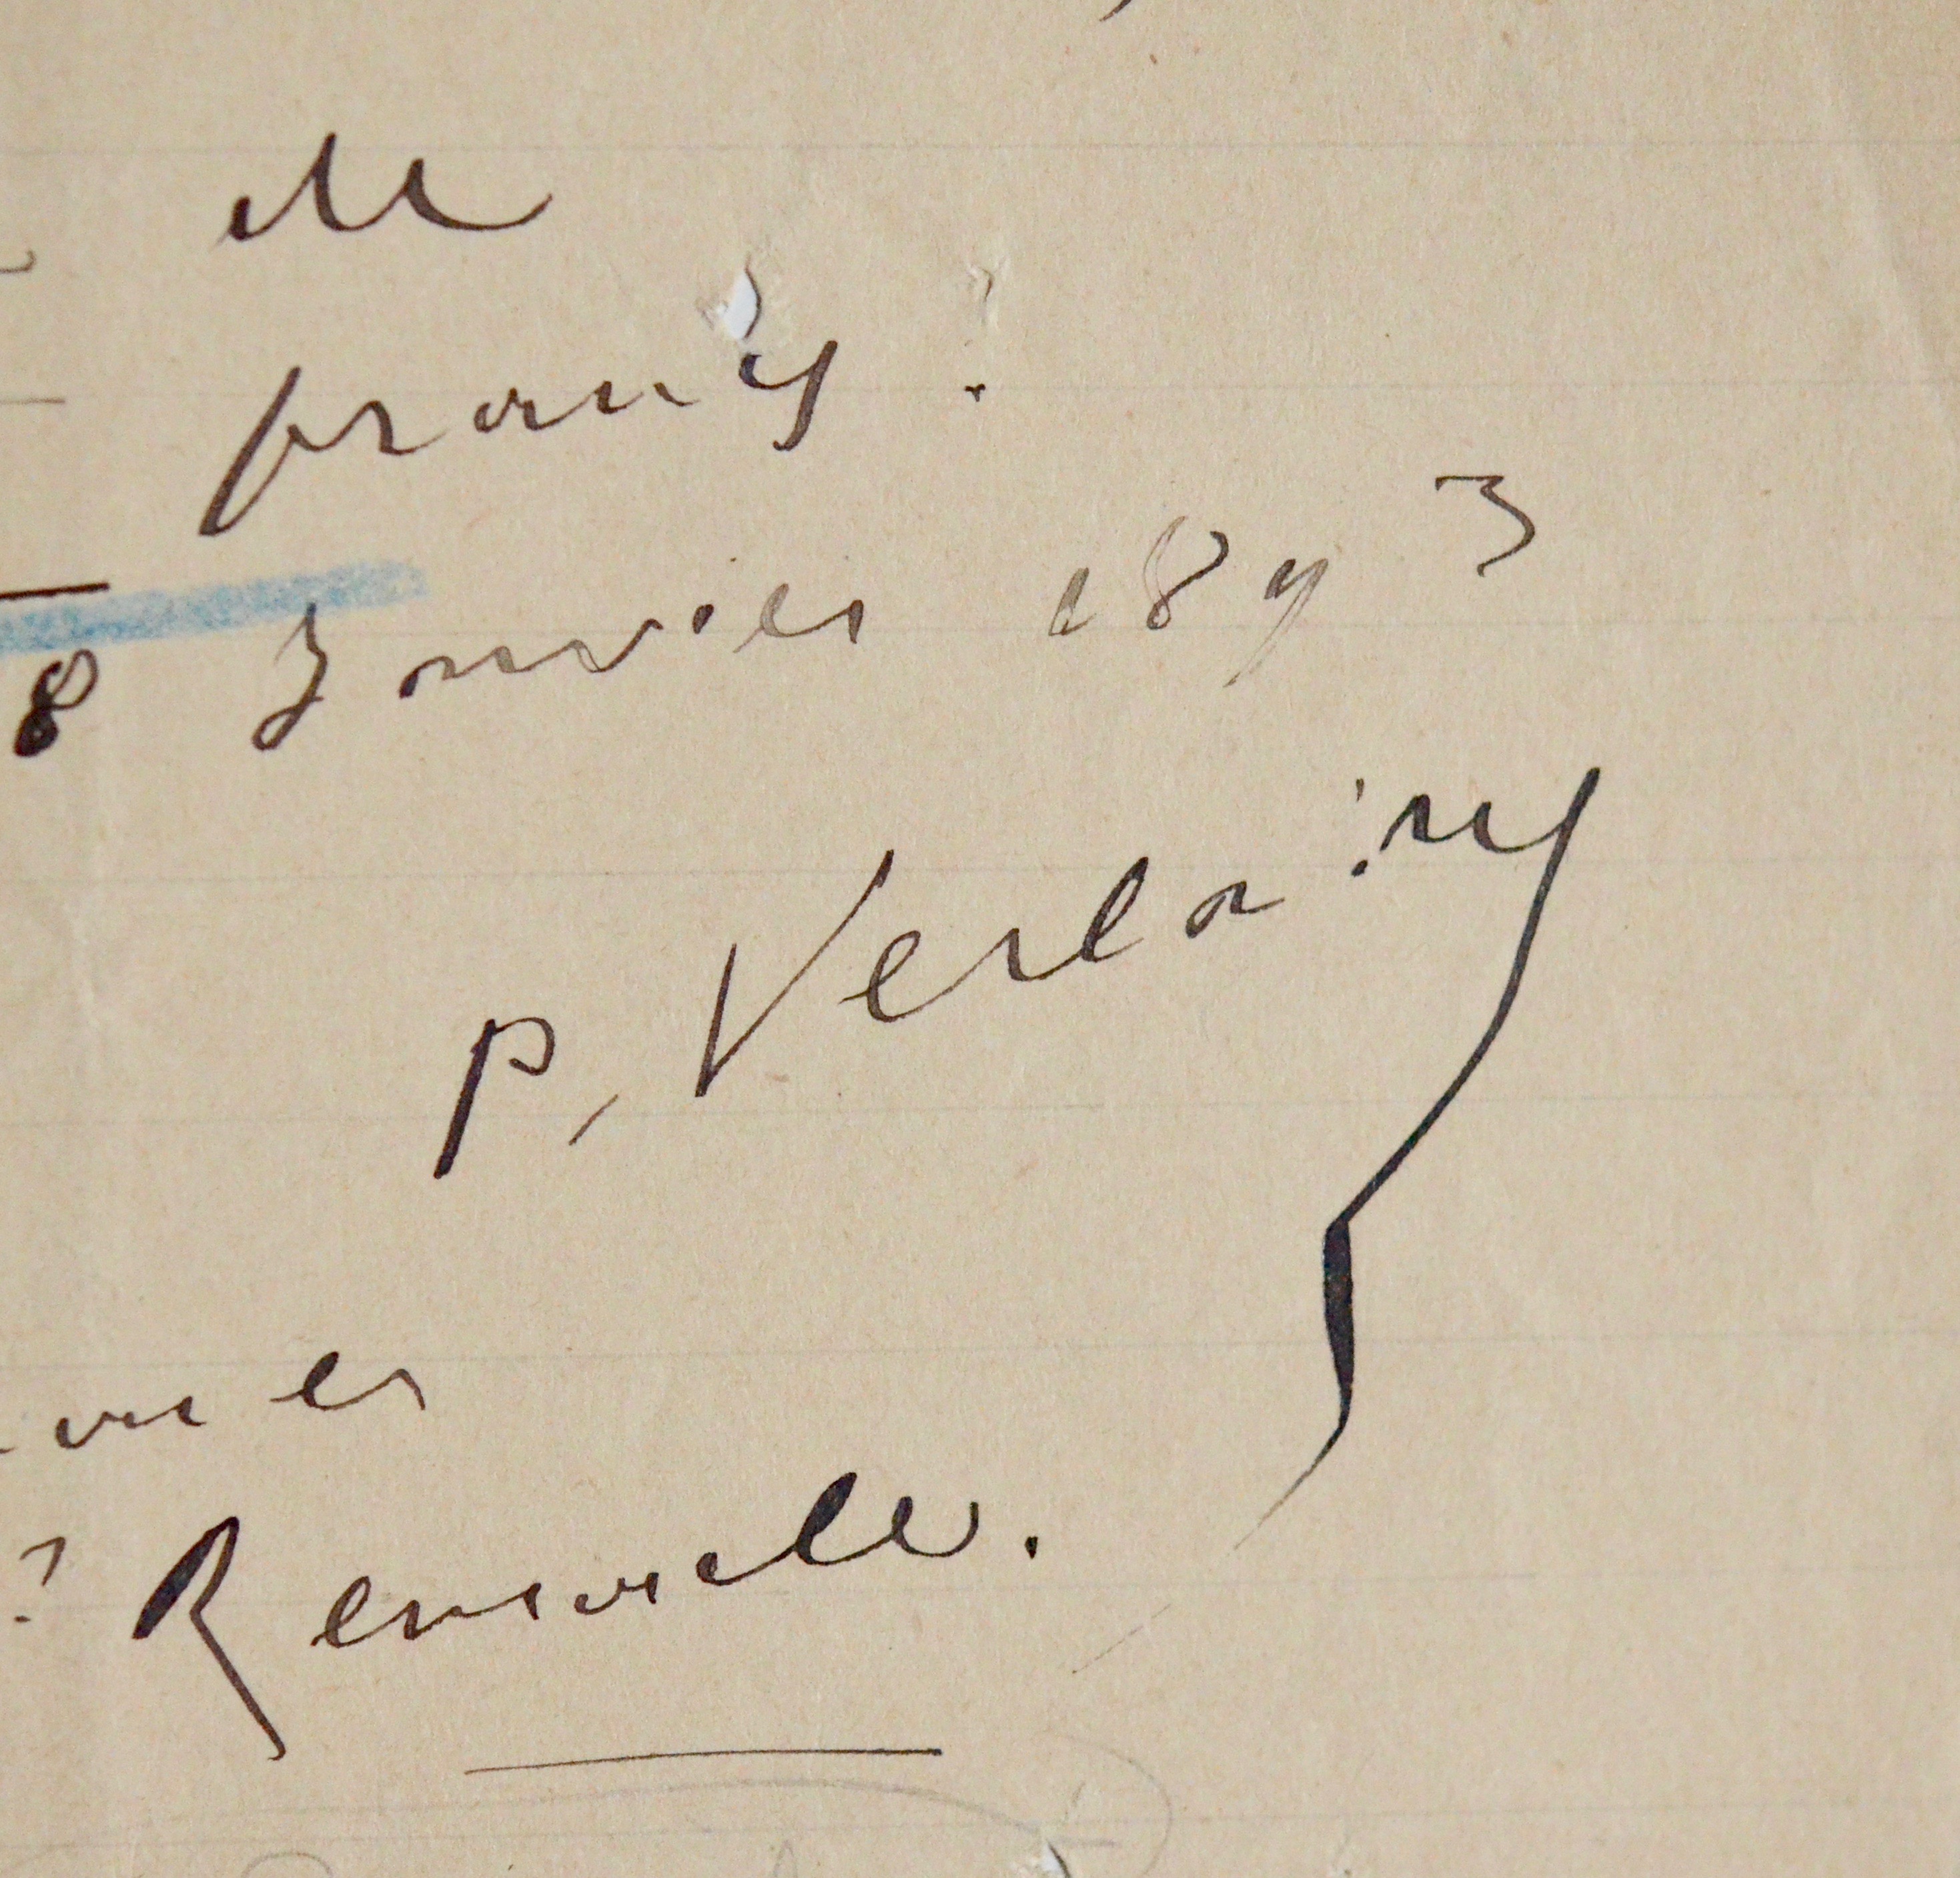 M
francs.
8 Janvier 1893
P. Verlaine
? Remacle.